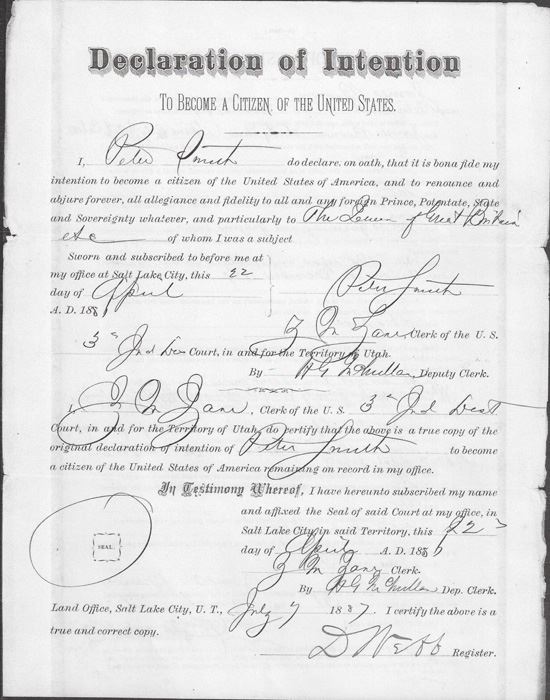 Declaration of Intention
TO BECOME A CITIZEN OF THE UNITED STATES.
I, Peter Smith do declare, on oath, that it is bona fide my
intention to become a citizen of the United States of America, and to renounce and
abjure forever, all allegiance and fidelity to all and any foreign Prince, Potentate, State
and Sovereignty whatever, and particularly to The Queen of Great Britain
etc of whom I was a subject
Sworn and subscribed to before me at
my office at Salt Lake City, this 22
day of April
Peter Smith
A. D. 188
Z M Zane, Clerk of the U. S.
3d Jud Court, in and for the Territory of Utah.
By H G McMillan, Deputy Clerk.
I, Z M Zane, Clerk of the U. S. 3d Jud Dist
Court, in and for the Territory of Utah, do certify that the above is a true copy of the
original declaration of intention of Peter Smith to become
a citizen of the United States of America remaining on record in my office.
In Testimony Whereof, I have hereunto subscribed my name
and affixed the Seal of said Court at my office, in
SEAL.
Salt Lake City, in said Territory, this 22
day of April A. D. 188
Z M Zane Clerk.
By H G McMillan Dep. Clerk.
Land Office, Salt Lake City, U. T., July 7 1887 I certify the above is a
true and correct copy.
D Webb Register.